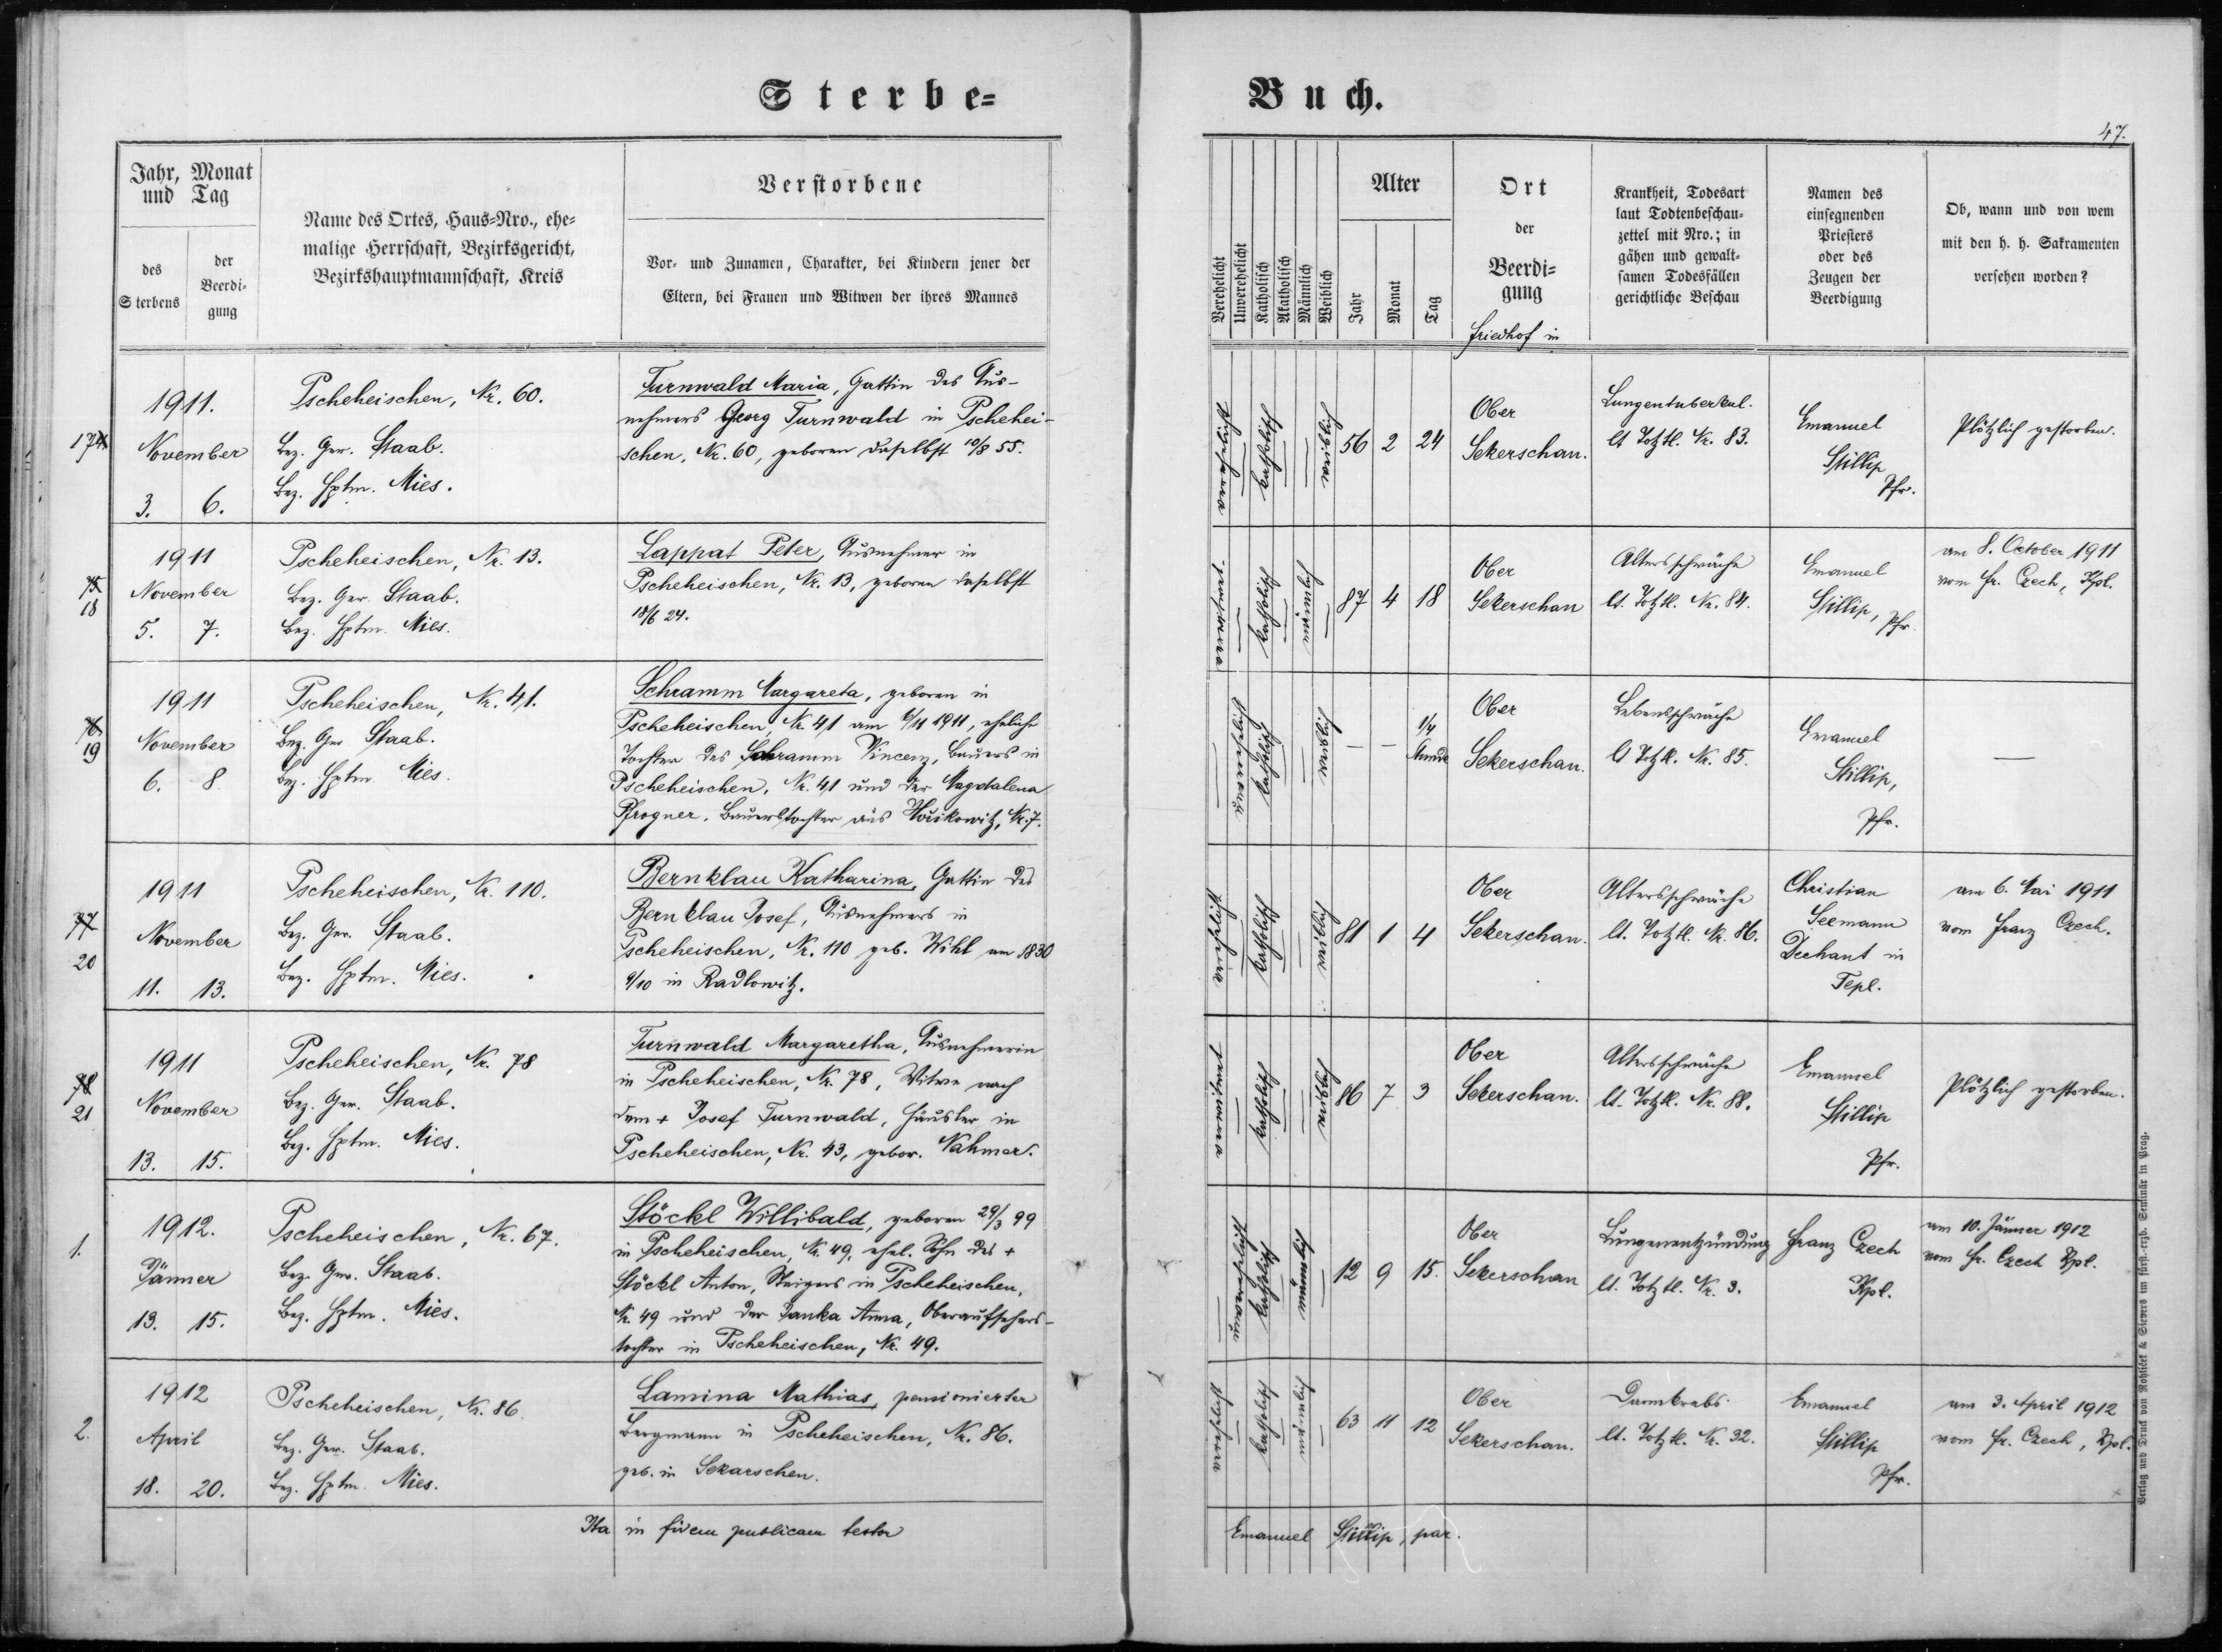 Sterbe=
Buch.
47.
Jahr, Monat
und Tag
des
Sterbens
der
Beerdi-
gung
Name des Ortes, Haus=Nro., ehe=
malige Herrschaft, Bezirksgericht,
Bezirkshauptmannschaft, Kreis
Verstorbene
Vor- und Zunamen, Charakter, bei Kindern jener der
Eltern, bei Frauen und Witwen der ihres Mannes
Verehelicht
Unverehelicht
Katholisch
Akatholisch
Männlich
Weiblich
Alter
Jahr
Monat
Tag
Ort
der
Beerdi=
gung
Friedhof in
Krankheit, Todesart
laut Todtenbeschau=
zettel mit Nro.; in
gähen und gewalt=
samen Todesfällen
gerichtliche Beschau
Namen des
einsegnenden
Priesters
oder des
Zeugen der
Beerdigung
Ob, wann und von wem
mit den h. h. Sakramenten
versehen worden?
174
1911.
November
3. 6.
Pscheheischen, Nr. 60.
Bez. Ger. Staab.
Bez. Hptm. Mies.
Turnwald Maria, Gattin des Aus-
nehmers Georg Turnwald in Pschehei-
schen, Nr. 60, geboren daselbst 10/8 55.
verehelicht
katholisch
weiblich
56 2 24
Ober
Sekerschan.
Lungentuberkul.
lt Totztl. Nr. 83.
Emanuel
Stillip
Pfr.
Plötzlich gestorben.
75
18
1911
November
5. 7.
Pscheheischen, Nr. 13.
Bez. Ger. Staab.
Bez. Hptm. Mies.
Lappat Peter, Ausnehmer in
Pscheheischen, Nr. 13, geboren daselbst
18/6 24.
verwitwet
katholisch
männlich
87 4 18
Ober
Sekerschan
Altersschwäche
lt. Totztl. Nr. 84.
Emanuel
Stillip, Pfr.
am 8. October 1911
vom Fr. Czech, Kpl.
76
19
1911
November
6. 8
Pscheheischen, Nr. 41.
Bez. Ger Staab.
Bez. Hptm. Mies.
Schramm Margareta, geboren in
Pscheheischen, Nr. 41 am 6/11 1911, eheliche
Tochter des Schramm Vincenz, Bauers in
Pscheheischen, Nr. 41 und der Magdalena
Pfrogner, Bauerstochter aus Wuikowitz, Nr. 7.
unverehelicht
katholisch
weiblich
— — 1/4
Stunde
Ober
Sekerschan.
Lebensschwäche
lt Totztl. Nr. 85.
Emanuel
Stillip,
Pfr.
—
77
20
1911
November
11. 13.
Pscheheischen, Nr. 110.
Bez. Ger. Staab.
Bez. Hptm. Mies.
Bernklau Katharina, Gattin des
Bernklau Josef, Ausnehmers in
Pscheheischen, Nr. 110 geb. Wihl am 1830
/10 in Radlowitz.
verehelicht
katholisch
weiblich
81 1 4
Ober
Sekerschan.
Altersschwäche
lt. Totztl. Nr. 86.
Christian
Seemann
Dechant in
Tepl.
am 6. Mai 1911
vom Franz Czech.
78
21
1911
November
13. 15.
Pscheheischen, Nr. 78
Bez. Ger. Staab.
Bez. Hptm. Mies.
Turnwald Margaretha, Ausnehmerin
in Pscheheischen, Nr. 78, Witwe nach
dem + Josef Turnwald, Häusler in
Pscheheischen, Nr. 43, gebor. Vahmer.
verwitwet
katholisch
weiblich
86 7 3
Ober
Sekerschan.
Altersschwäche
lt. Totztl. Nr. 88.
Emanuel
Stillip
Pfr.
Plötzlich gestorben.
1.
1912.
Jänner
13. 15.
Pscheheischen, Nr. 67.
Bez. Ger. Staab.
Bez. Hptm. Mies.
Stöckl Willibald, geboren 29/3 99
in Pscheheischen, Nr. 49, ehel. Sohn des +
Stöckl Anton, Steigers in Pscheheischen,
Nr. 49 und der Janka Anna, Oberaufsehers-
tochter in Pscheheischen, Nr. 49.
unverehelicht
katholisch
männlich
12 9 15.
Ober
Sekerschan
Lungenentzündung
lt. Totztl. Nr. 3.
Franz Czech
Kpl.
am 10. Jänner 1912
vom Fr. Czech Kpl.
2.
1912
April
18. 20.
Pscheheischen, Nr. 86.
Bez. Ger. Staab.
Bez. Hptm. Mies.
Lamina Mathias, pensionierter
Bergmann in Pscheheischen, Nr. 86.
geb. in Sekarschen.
verehelicht
katholisch
männlich
63 11 12
Ober
Sekerschan.
Darmkrebs.
lt. Totztl. Nr. 32.
Emanuel
Stillip
Pfr.
am 3. April 1912
vom Fr. Czech, Kpl.
Ita in fidem publicam testor
Emanuel Stillip, par.
Verlag und Druck von Rohlicek & Sievers im fürst.-erzb. Seminär in Prag.